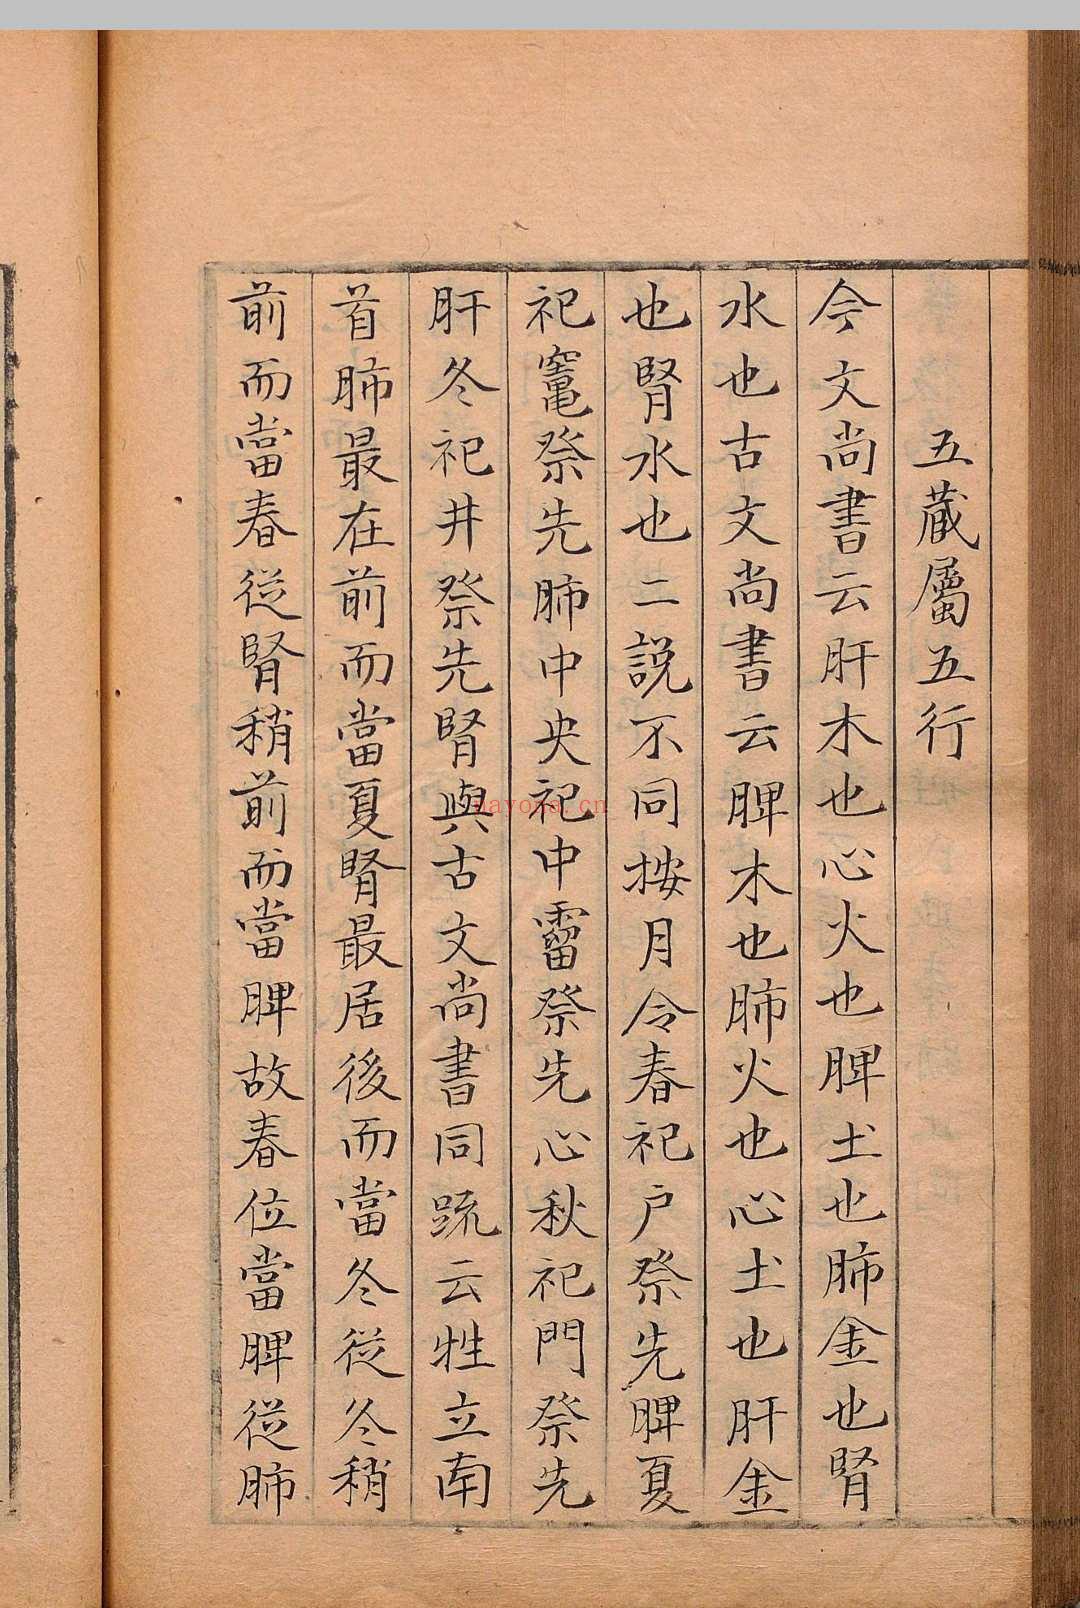 五藏屬五行
今文尚書云肝木也心火也脾土也肺金也腎
水也古文尚書云脾木也肺火也心土也肝金
也腎水也二説不同按月令春祀户祭先脾夏
祀竈祭先肺中央祀中霤祭先心秋祀門祭先
肝冬祀井祭先腎與古文尚書同疏云牲立南
首肺最在前而當夏腎最居後而當冬從冬稍
前而當春從腎稍前而當脾故春位當脾從肺
nayona.cn